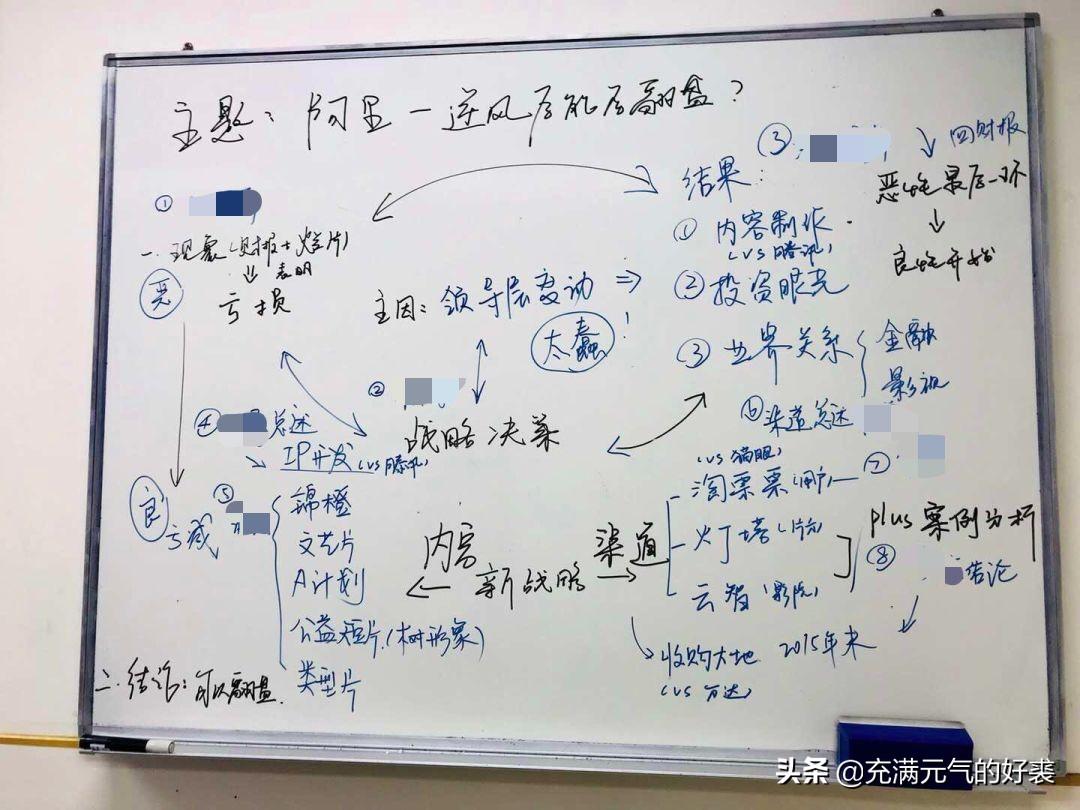 主题：阿里一逆风后能否翻盘？
③
回财报
恶性最后一环
良性开始
①
一.现象(财报+烂片)
表明
亏损
恶
主因：领导层变动
太蠢！
②
战略决策
结果：
①内容制作
(VS腾讯)
②投资眼光
③业界关系
金融
影视
④总述
IP开发(VS腾讯)
良
亏减
⑤
锦橙
文艺片
A计划
公益短片(树形象)
类型片
内容
新战略
渠道
⑥渠道总述
(VS猫眼)
⑦
淘票票(用户)
灯塔(片方)
云智(影院)
plus案例分析
⑧结论
收购大地 2015年末
(VS万达)
二.结论：可以翻盘.
头条 @充满元气的好裘